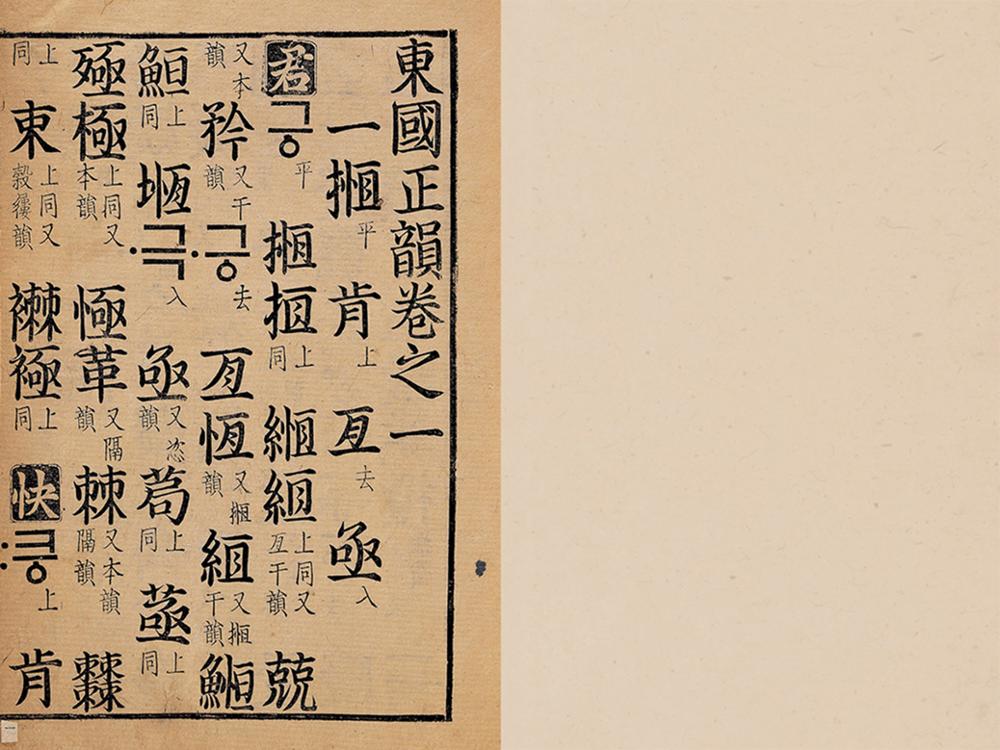 東國正韻卷之一
一 揯 平 肯 上 亙 去 亟 入
君 긍 平 揯 搄 上同 縆 絚 上同又亙干韻 兢
又本韻 矜 又干韻 ·긍 去 亙 恆 又揯韻 絚 又揯干韻
上同 堩 ·극 入 亟 又恣韻 上同 上同
殛 極 上同又本韻 革 又隔韻 棘 又本韻隔韻
上同 上同又 襋 上同 快 :킁 上 肯